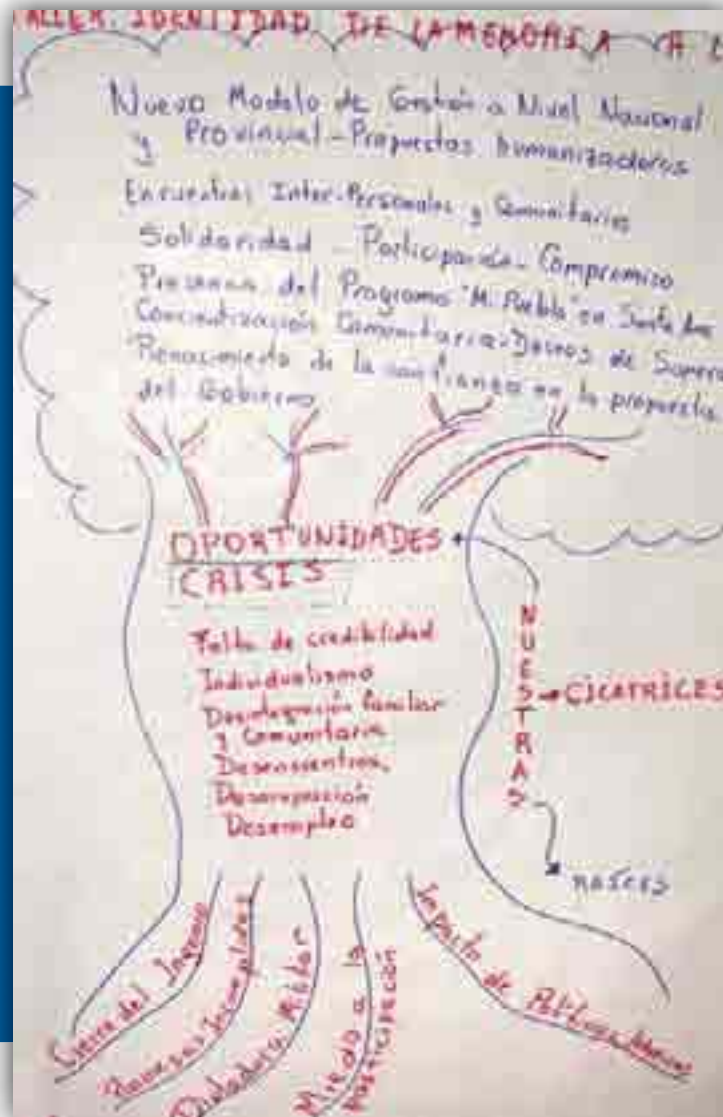 TALLER IDENTIDAD DE LA MEMORIA A L
Nuevo Modelo de Gestión a Nivel Nacional
y Provincial - Propuestas humanizadoras
Encuentros Inter-Personales y Comunitarios
Solidaridad - Participación - Compromiso
Presencia del Programa "Mi Pueblo" en Santa Ana
Concientización Comunitaria - Deseos de Supera
Renacimiento de la confianza en la propuesta
del Gobierno
OPORTUNIDADES
CRISIS
Falta de credibilidad
Individualismo
Desintegración familiar
y Comunitaria
Desencuentros,
Desocupación
Desempleo
NUESTRAS
CICATRICES
RAÍCES
Cierre del Ingenio
Promesas Incumplidas
Dictadura Militar
Miedo a la
participación
Impacto de Políticas